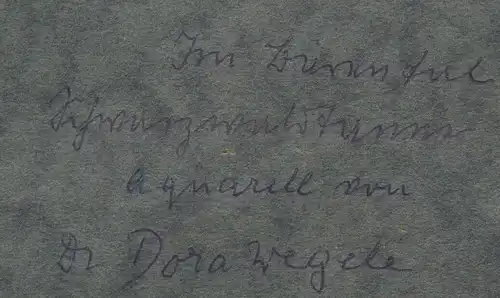 Im Bärental
Schwarzwaldtanne
Aquarell von
Dr Dora Wegele